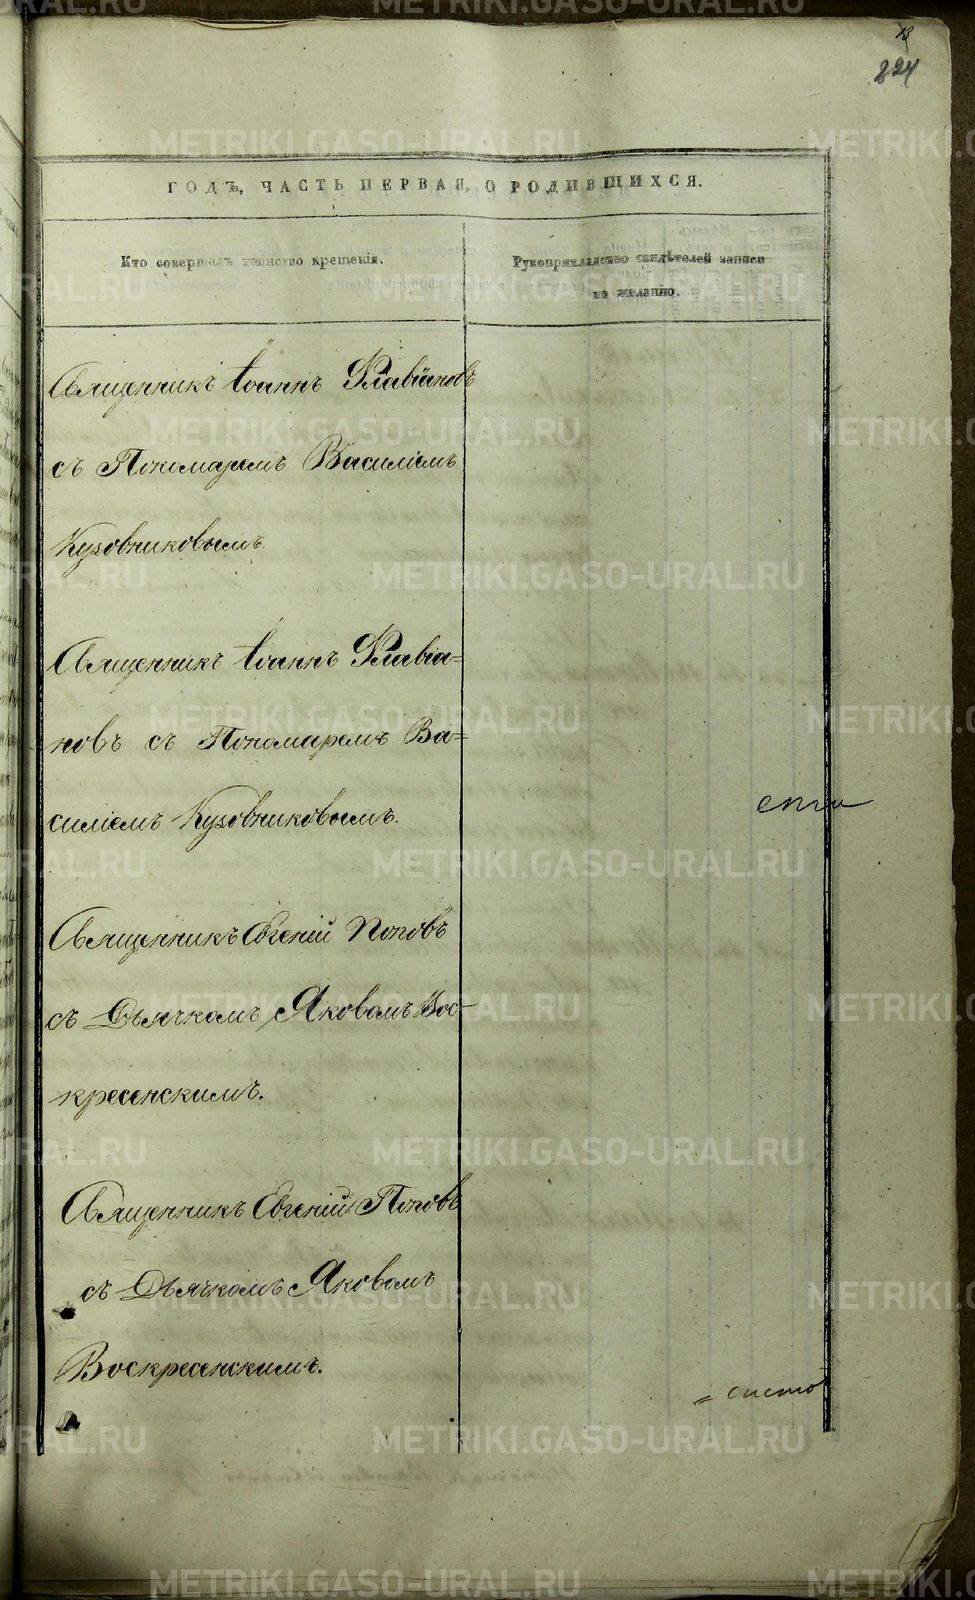 13
824
ГОДЪ, ЧАСТЬ ПЕРВАЯ, О РОДИВШИХСЯ.
Кто совершалъ таинство крещенія.
Рукоприкладство свидѣтелей записи
по желанію.
Священникъ Іоаннъ Флавіановъ
съ Пономаремъ Василіемъ
Кузовниковымъ.
Священникъ Іоаннъ Флавіа-
новъ съ Пономаремъ Ва-
силіемъ Кузовниковымъ.
Священникъ Евгеній Поповъ
съ Дьячкомъ Яковомъ Вос-
кресенскимъ.
Священникъ Евгеній Поповъ
съ Дьячкомъ Яковомъ
Воскресенскимъ.
METRIKI.GASO-URAL.RU